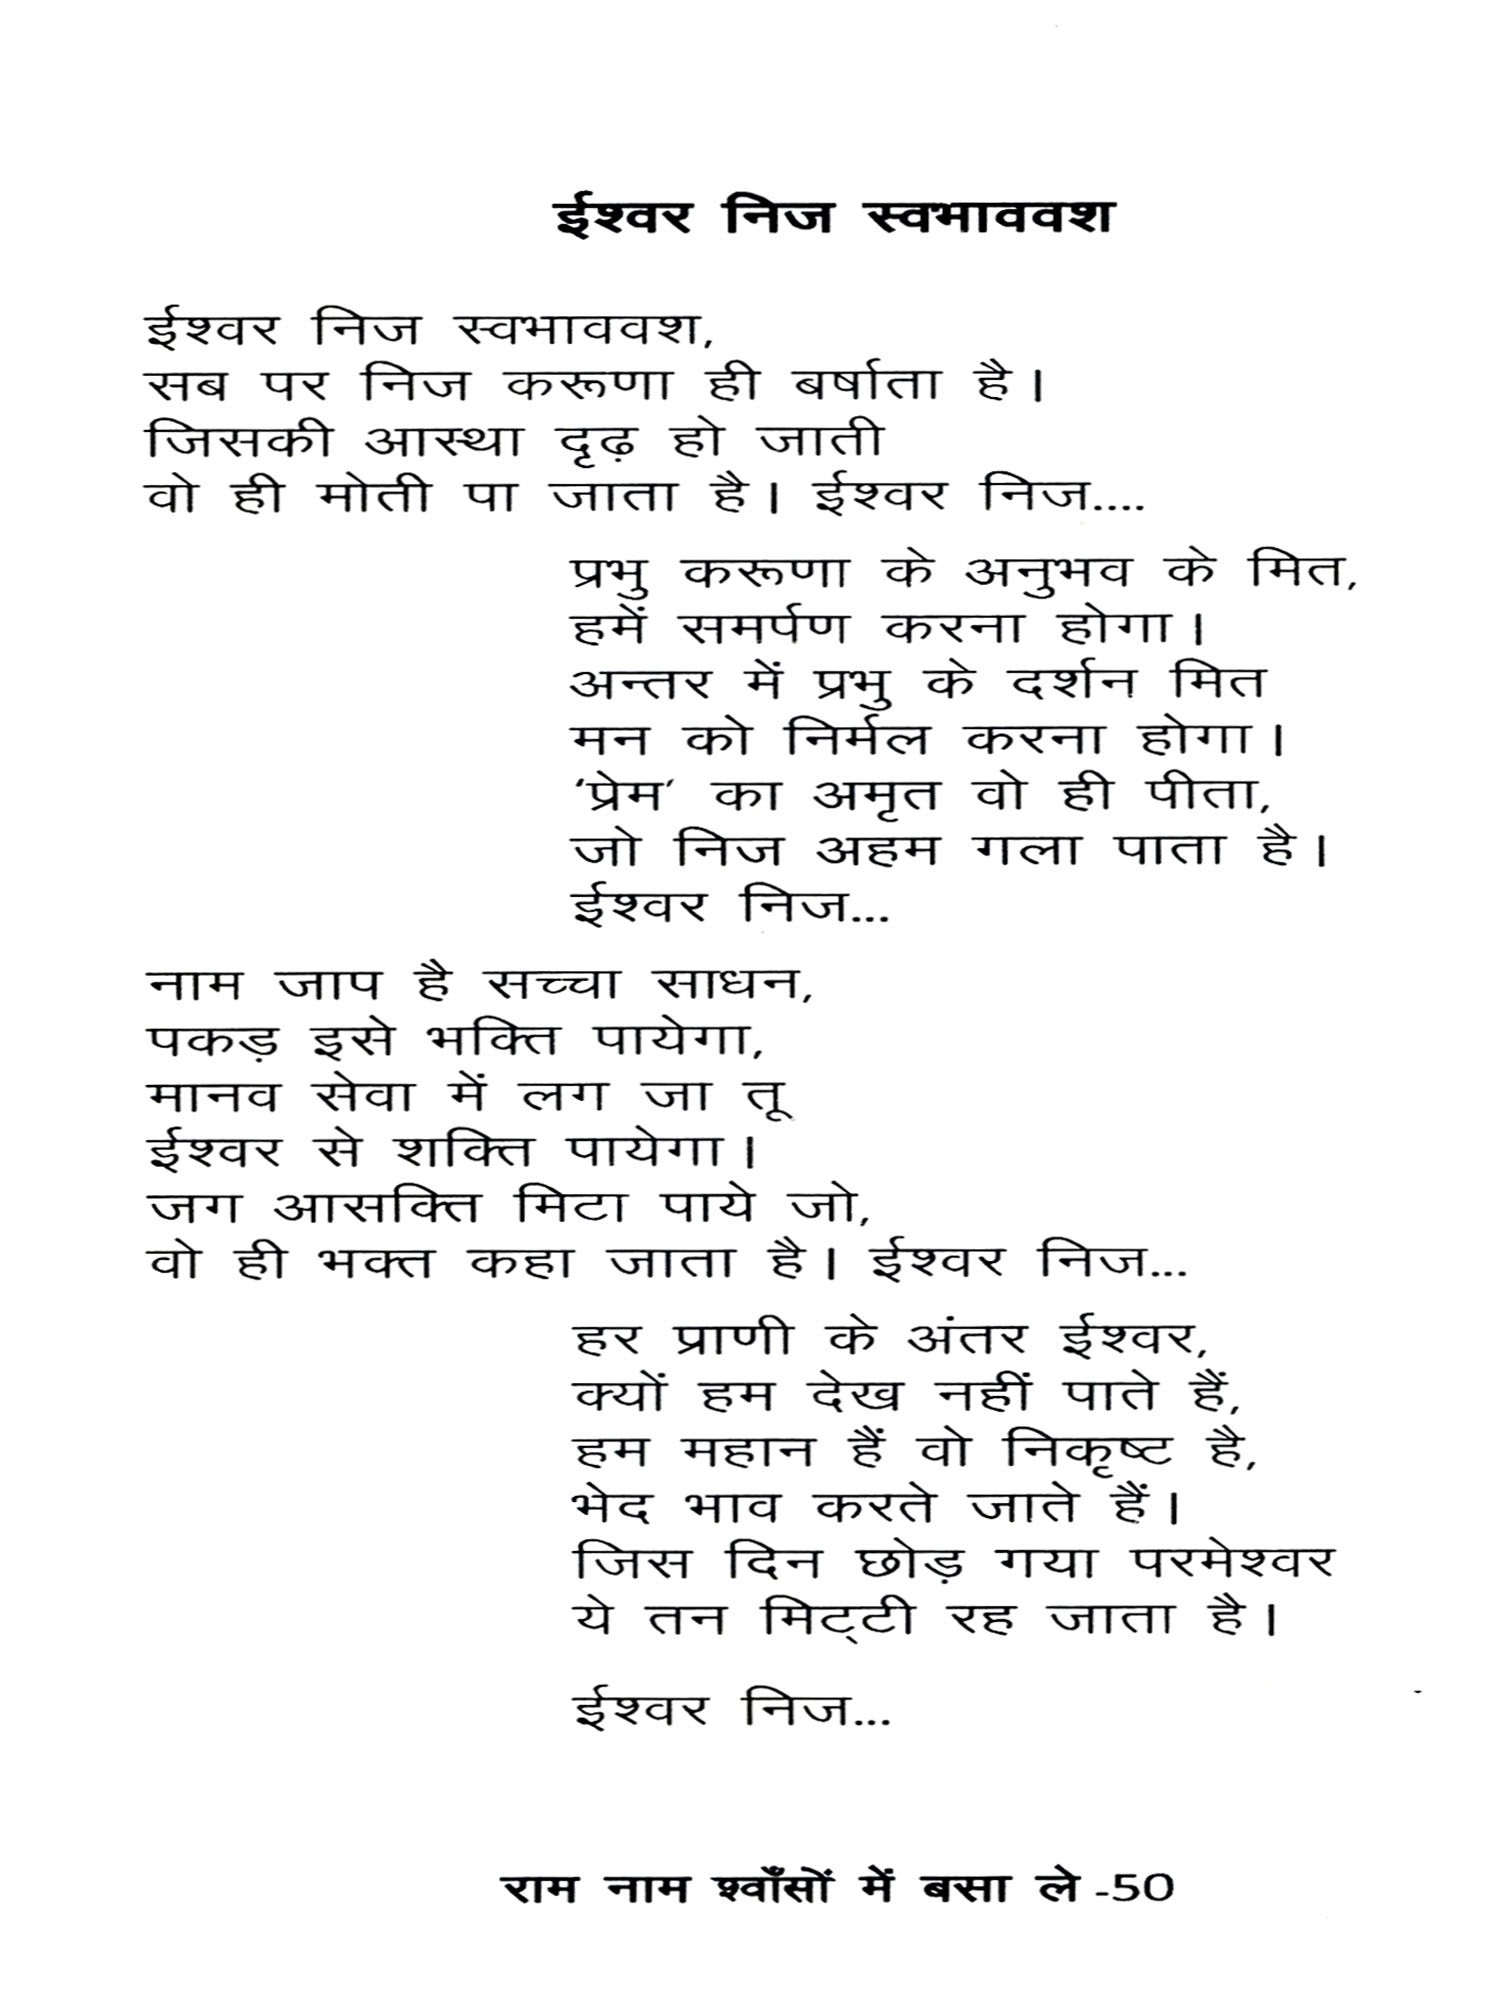 ईश्वर निज स्वभाववश
ईश्वर निज स्वभाववश,
सब पर निज करूणा ही बर्षाता है।
जिसकी आस्था दृढ़ हो जाती
वो ही मोती पा जाता है। ईश्वर निज....
प्रभु करूणा के अनुभव के मित,
हमें समर्पण करना होगा।
अन्तर में प्रभु के दर्शन मित
मन को निर्मल करना होगा।
‘प्रेम’ का अमृत वो ही पीता,
जो निज अहम गला पाता है।
ईश्वर निज...
नाम जाप है सच्चा साधन,
पकड़ इसे भक्ति पायेगा,
मानव सेवा में लग जा तू
ईश्वर से शक्ति पायेगा।
जग आसक्ति मिटा पाये जो,
वो ही भक्त कहा जाता है। ईश्वर निज...
हर प्राणी के अंतर ईश्वर,
क्यों हम देख नहीं पाते हैं,
हम महान हैं वो निकृष्ट है,
भेद भाव करते जाते हैं।
जिस दिन छोड़ गया परमेश्वर
ये तन मिट्टी रह जाता है।
ईश्वर निज...
राम नाम श्वाँसों में बसा ले -50